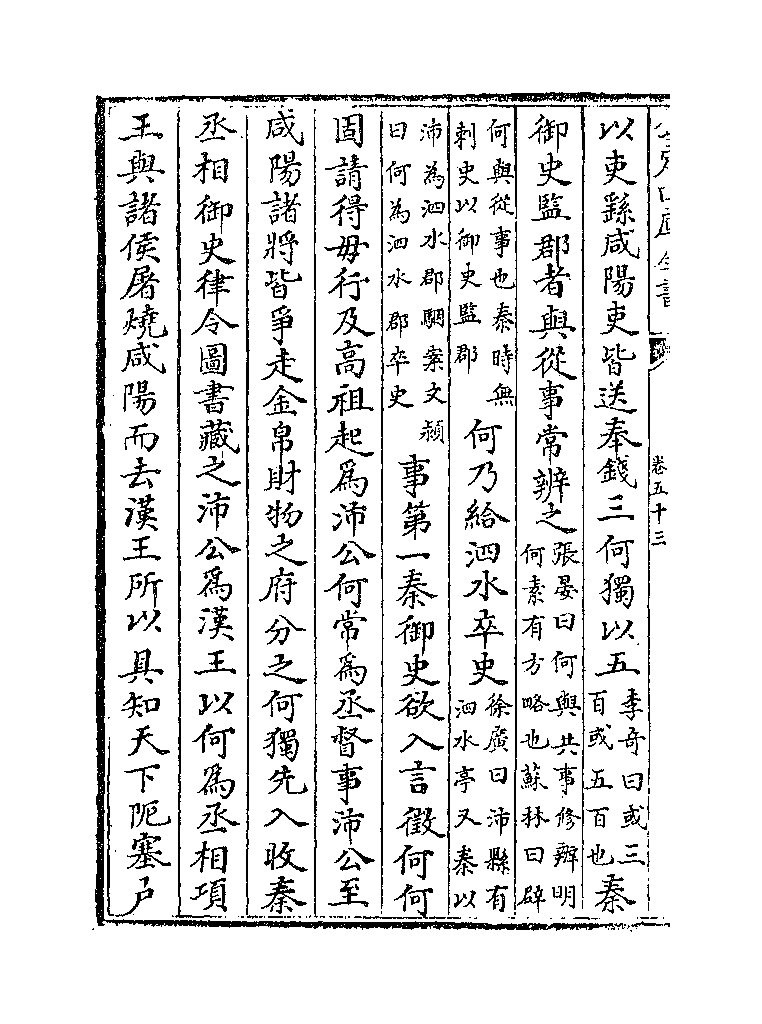 欽定四庫全書
卷五十三
以吏繇咸陽吏皆送奉錢三何獨以五李奇曰或三百或五百也秦
御史監郡者與從事常辨之張晏曰何與共事修辦明何素有方略也蘇林曰辟
何與從事也秦時無刺史以御史監郡何乃給泗水卒史徐廣曰沛縣有泗水亭又秦以
沛為泗水郡駰案文穎曰何為泗水郡卒史事第一秦御史欲入言徵何何
固請得毋行及高祖起為沛公何常為丞督事沛公至
咸陽諸將皆爭走金帛財物之府分之何獨先入收秦
丞相御史律令圖書藏之沛公為漢王以何為丞相項
王與諸侯屠燒咸陽而去漢王所以具知天下阨塞户